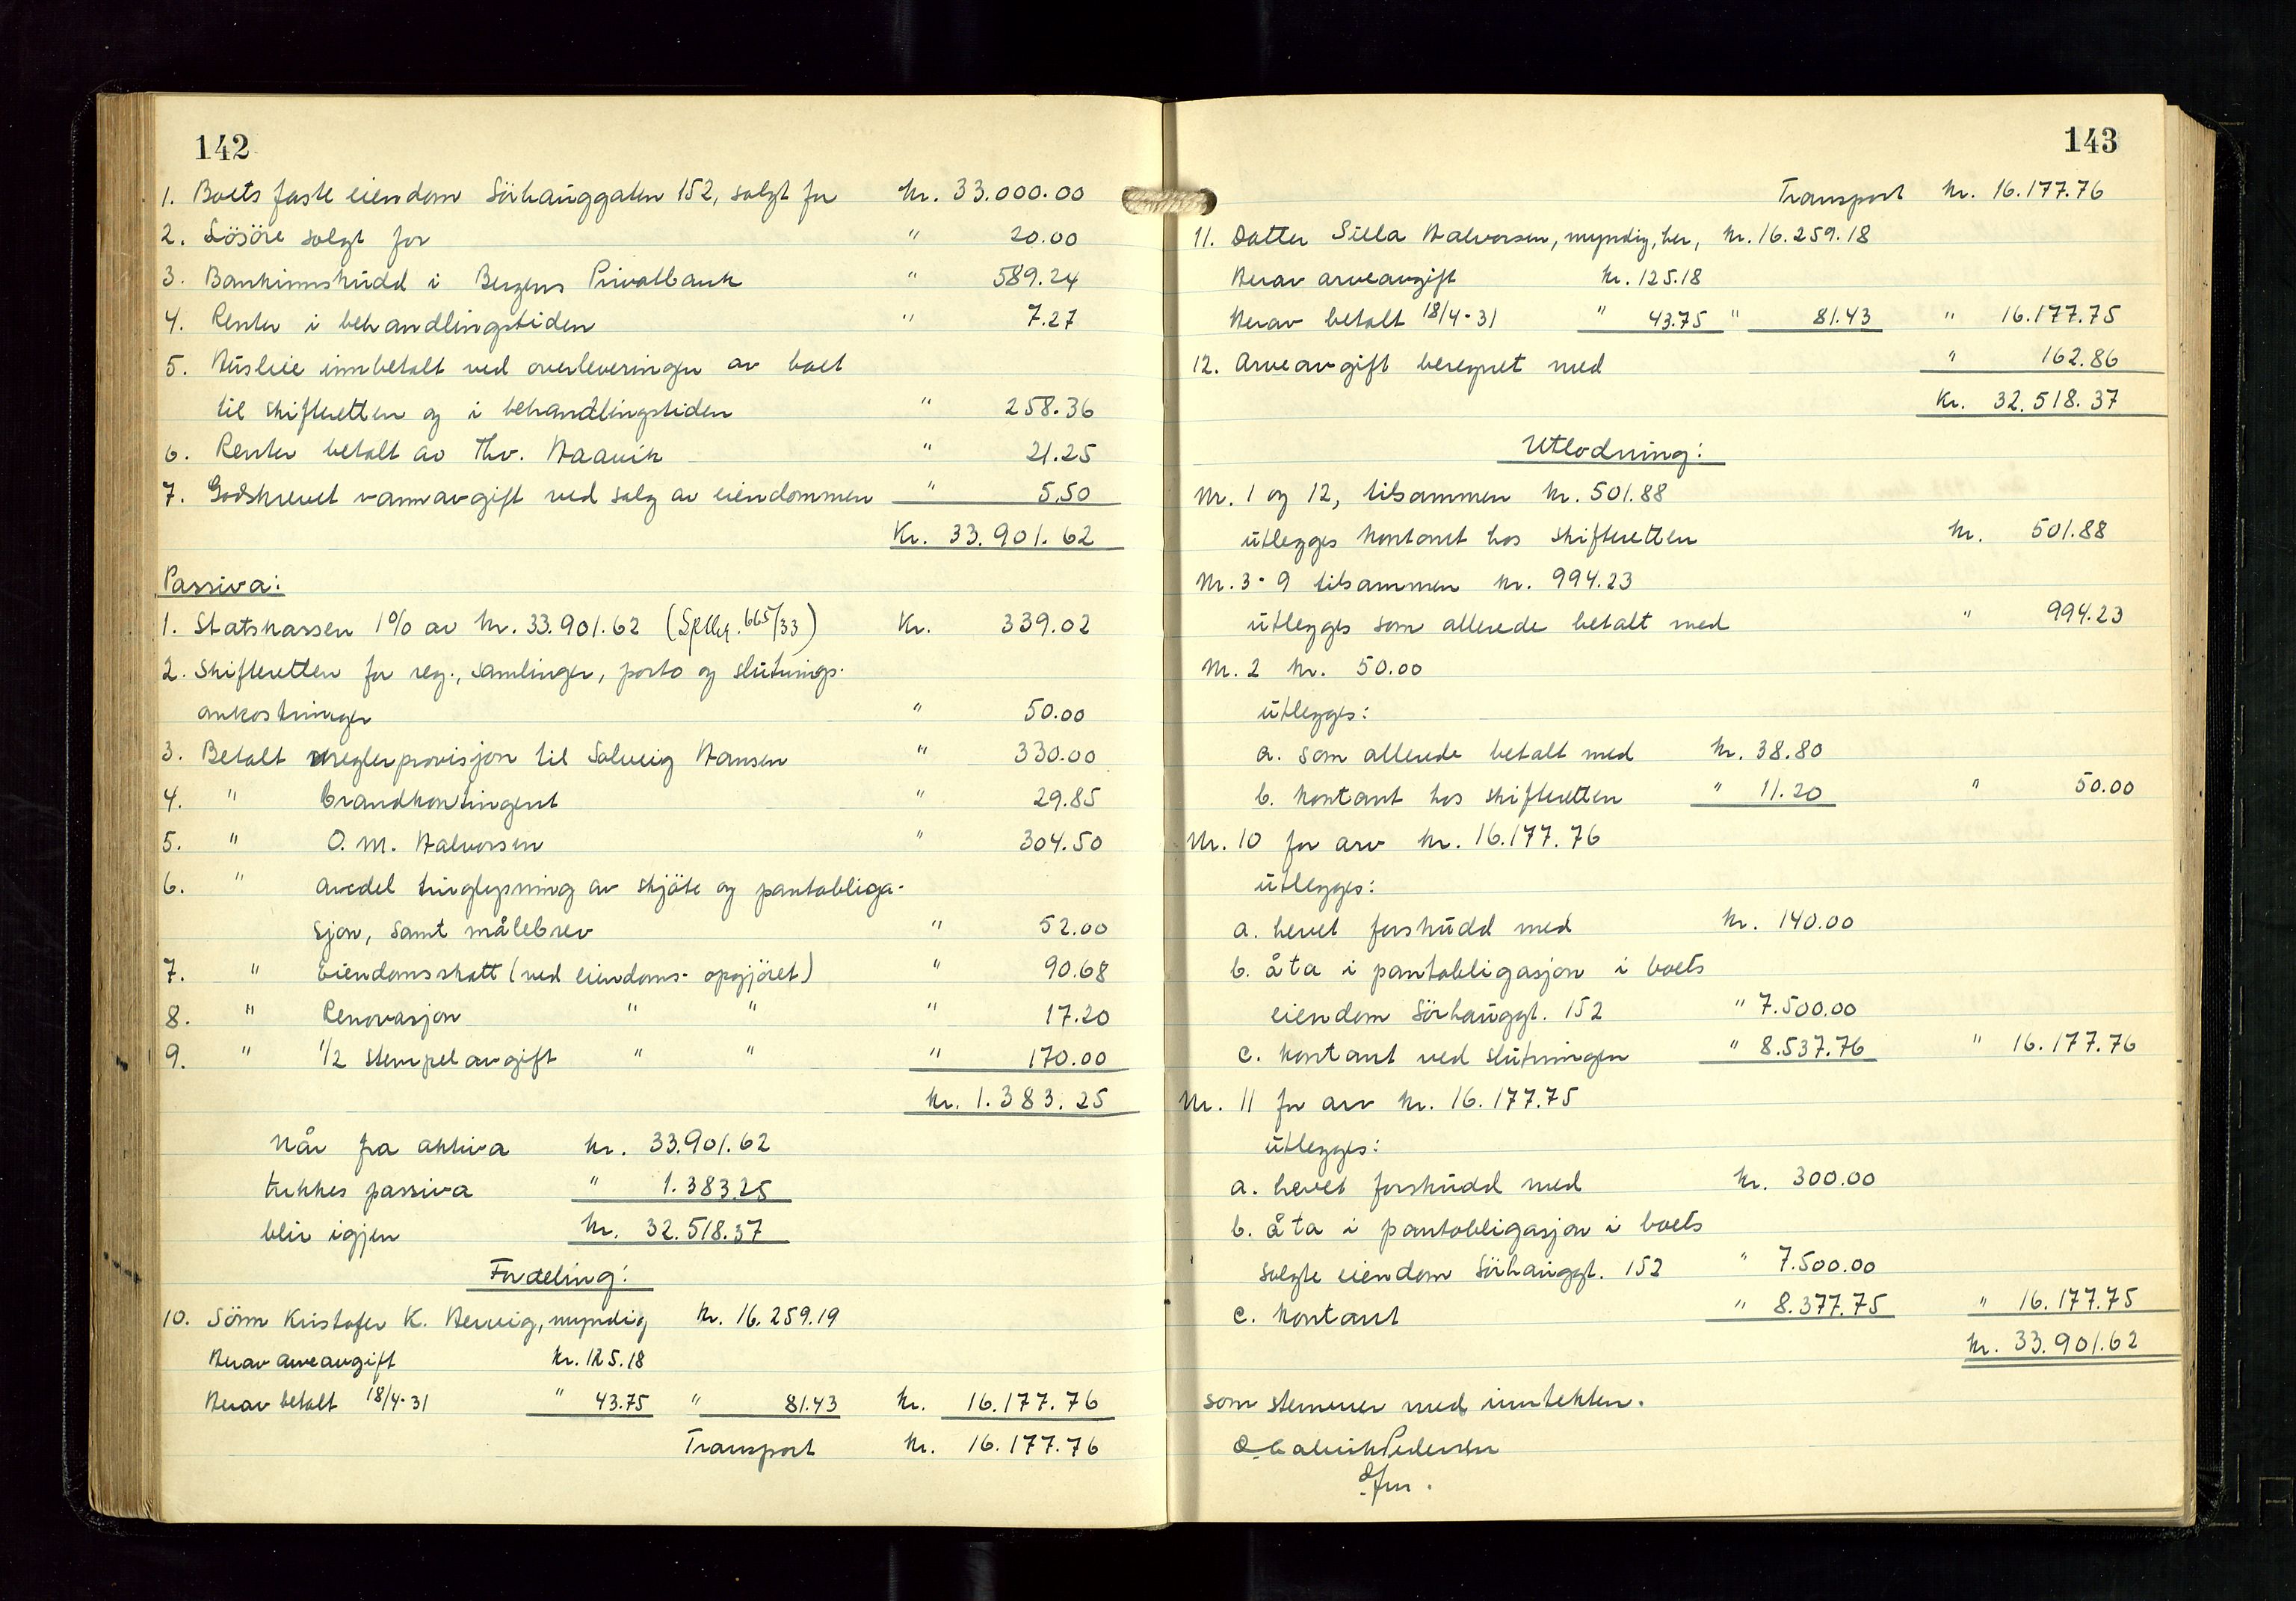 142
1. Boets faste eiendom Sörhauggaten 152, solgt for kr. 33.000.00
2. Lösöre solgt for " 20.00
3. Bankinnskudd i Bergens Privatbank " 589.24
4. Renter i behandlingstiden " 7.27
5. Husleie innbetalt ved overleveringen av boet
til skifteretten og i behandlingstiden " 258.36
6. Renter betalt av Thv. Haavik " 21.25
7. Godskrevet vannavgift ved salg av eiendommen " 5.50
Kr. 33.901.62
Passiva:
1. Statskassen 1% av kr. 33.901.62 ( 665/33) Kr. 339.02
2. Skifteretten for reg., samlinger, porto og slutnings-
omkostninger " 50.00
3. Betalt meglerprovisjon til Solveig Hansen " 330.00
4. " brandkontingent " 29.85
5. " O. M. Halvorsen " 304.50
6. " andel tinglysning av skjöte og pantobliga-
sjon, samt målebrev " 52.00
7. " Eiendomsskatt (ved eiendoms-opgjöret) " 90.68
8. " Renovasjon " " " 17.20
9. " 1/2 stempelavgift " " " 170.00
kr. 1.383.25
Når fra aktiva kr. 33.901.62
trekkes passiva " 1.383.25
blir igjen kr. 32.518.37
Fordeling:
10. Sönn Kristofer K. Hervig, myndig kr. 16.259.19
Herav arveavgift kr. 125.18
Herav betalt 18/4-31 " 43.75 " 81.43 kr. 16.177.76
Transport kr. 16.177.76
143
Transport kr. 16.177.76
11. Datter Silla Halvorsen, myndig, her, kr. 16.259.18
Herav arveavgift kr. 125.18
Herav betalt 18/4-31 " 43.75 " 81.43 " 16.177.75
12. Arveavgift beregnet med " 162.86
Kr. 32.518.37
Utlodning:
Nr. 1 og 12, tilsammen kr. 501.88
utlegges kontant hos skifteretten kr. 501.88
Nr. 3-9 tilsammen kr. 994.23
utlegges som allerede betalt med " 994.23
Nr. 2 kr. 50.00
utlegges:
a. som allerede betalt med kr. 38.80
b. kontant hos skifteretten " 11.20 " 50.00
Nr. 10 for arv kr. 16.177.76
utlegges:
a. hevet forskudd med kr. 140.00
b. åta i pantobligasjon i boets
eiendom Sörhauggt. 152 " 7.500.00
c. kontant ved slutningen " 8.537.76 " 16.177.76
Nr. 11 for arv kr. 16.177.75
utlegges:
a. hevet forskudd med kr. 300.00
b. åta i pantobligasjon i boets
solgte eiendom Sörhauggt. 152 " 7.500.00
c. kontant " 8.377.75 " 16.177.75
kr. 33.901.62
som stemmer med inntekten.
Pedersen